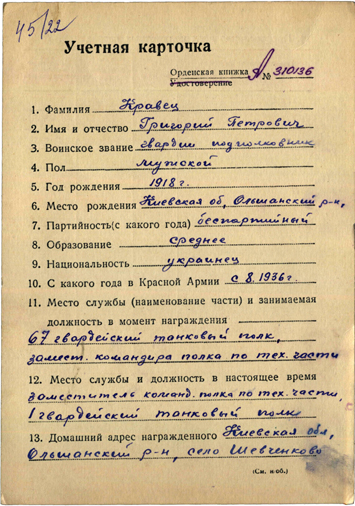 45/22
Учетная карточка
Орденская книжка А № 310136
Удостоверение
1. Фамилия Кравец
2. Имя и отчество Григорий Петрович
3. Воинское звание гвардии подполковник
4. Пол мужской
5. Год рождения 1918 г.
6. Место рождения Киевская об, Ольшанский р-н,
7. Партийность(с какого года) беспартийный
8. Образование среднее
9. Национальность украинец
10. С какого года в Красной Армии с 8.1936г.
11. Место службы (наименование части) и занимаемая
должность в момент награждения
67 гвардейский танковый полк,
замест. командира полка по тех. части
12. Место службы и должность в настоящее время
заместитель команд. полка по тех. части,
1 гвардейский танковый полк
13. Домашний адрес награжденного Киевская обл,
Ольшанский р-н, село Шевченково
(См. н/об.)